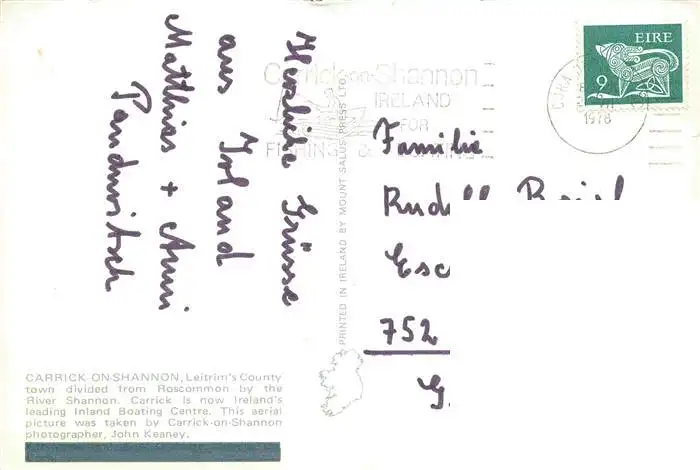 Herzliche Grüsse
aus Irland
Matthias + Anni
Carrick-on-Shannon
IRELAND
FOR
FISHING &
EIRE
9
1978
PRINTED IN IRELAND BY MOUNT SALUS PRESS LTD.
Familie
752
CARRICK-ON-SHANNON, Leitrim's County
town divided from Roscommon by the
River Shannon. Carrick is now Ireland's
leading Inland Boating Centre. This aerial
picture was taken by Carrick-on-Shannon
photographer, John Keaney.